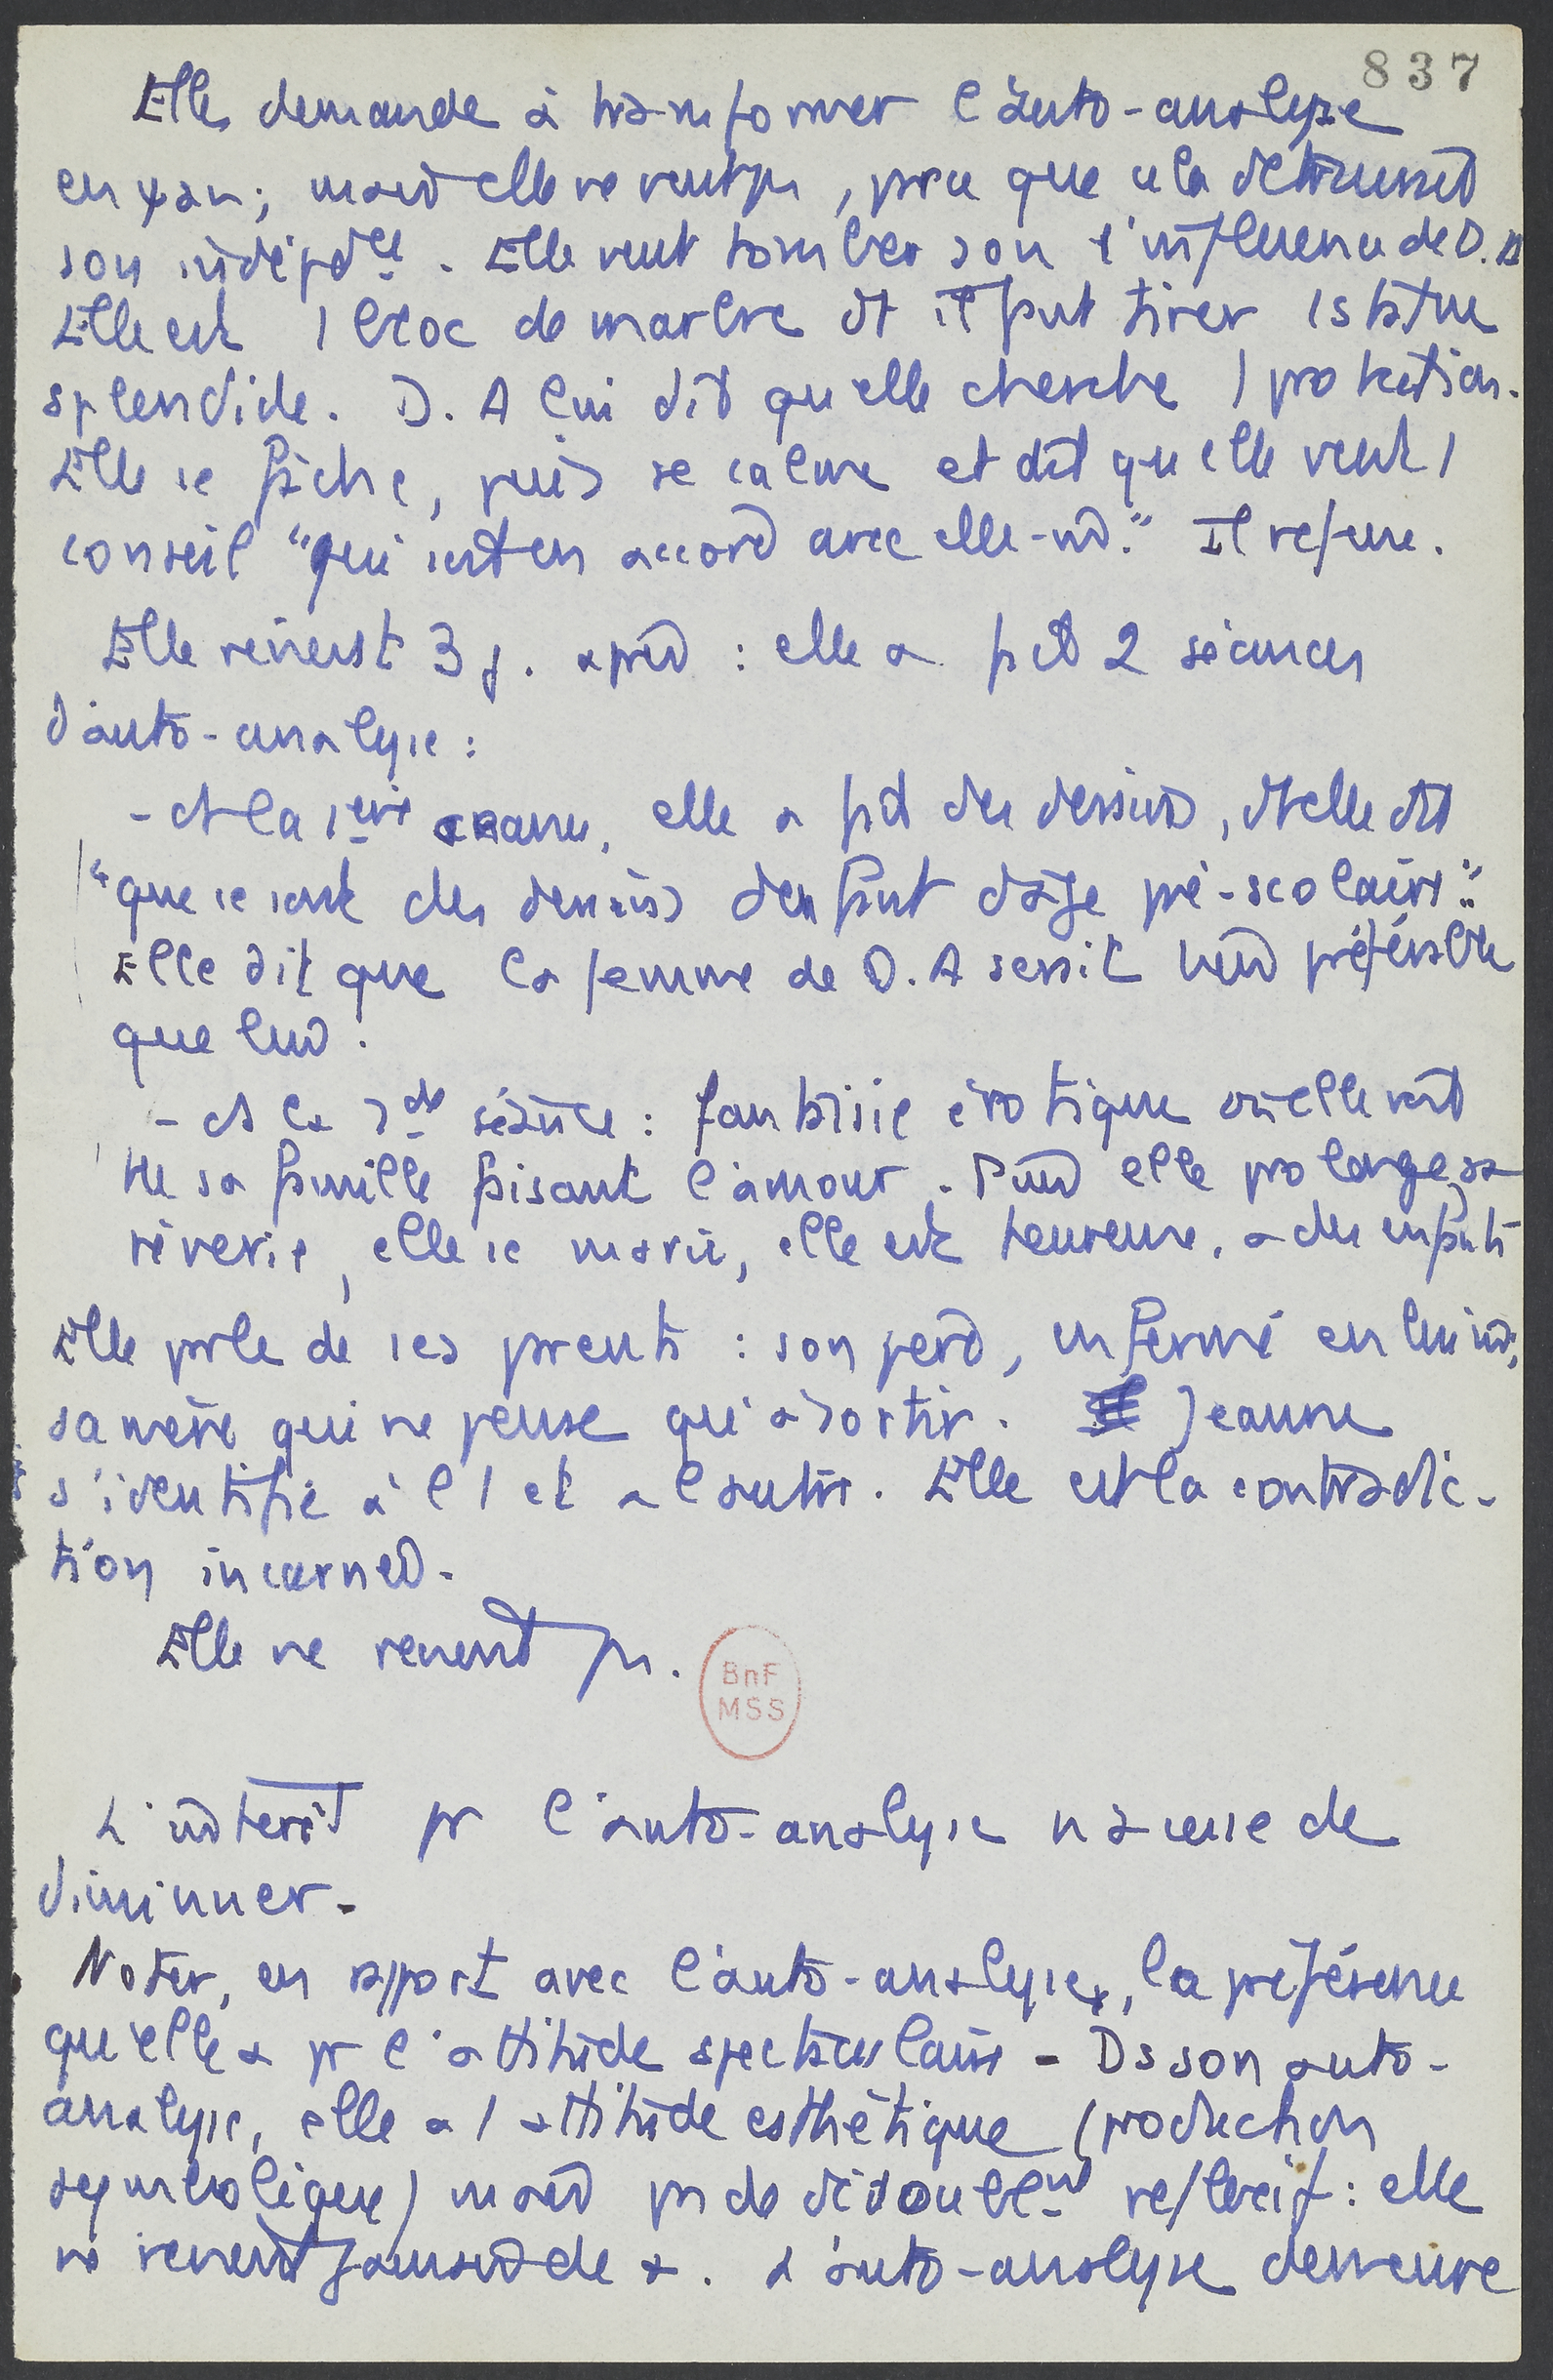 837
Elle demande à transformer l'auto-analyse
en ψan ; mais elle ne veut pas, parce que cela détruirait
son indépdce. Elle veut tomber sous l'influence de D. A
Elle est 1 bloc de marbre dt il faut tirer 1 statue
splendide. D. A lui dit qu'elle cherche 1 protection.
Elle se fâche, puis se calme et dit qu'elle veut 1
conseil "qui soit en accord avec elle-m." Il refuse.
Elle revient 3 j. après : elle a fait 2 séances
d'auto-analyse :
- ds la 1ère elle a fait des dessins, dt elle dit
"que ce sont des dessins d'enfant d'âge pré-scolaire".
Elle dit que la femme de D. A serait bien préférable
que lui.
- ds la 2de séance : fantaisie érotique où elle voit
tte sa famille faisant l'amour. Puis elle prolonge sa
rêverie, elle se marie, elle est heureuse, a des enfants
Elle parle de ses parents : son père, enfermé en lui m,
sa mère qui ne pense qu'à sortir. Jeanne
s'identifie à l'1 et à l'autre. Elle est la contradic-
tion incarnée.
Elle ne revient pas.
BnF
MSS
L'intérêt pr l'auto-analyse n'a cessé de
diminuer.
Noter, en rapport avec l'auto-analyse, la préférence
qu'elle a pr l'attitude spectaculaire - Ds son auto-
analyse, elle a 1 attitude esthétique (production
symbolique) mais pas de dédoublemt réflexif : elle
ne revient jamais de. L'auto-analyse demeure